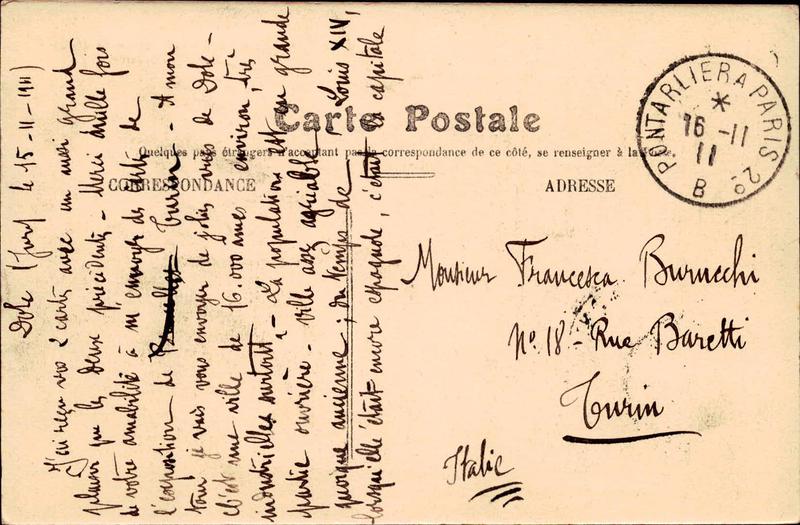 Carte Postale
Quelques pays étrangers n'acceptant pas de correspondance de ce côté, se renseigner à la Poste.
CORRESPONDANCE
ADRESSE
PONTARLIER A PARIS 2º
16 - 11
11
B
Dole (Jura) le 15-11-1911
J'ai reçu vos 2 cartes avec un aussi grand
plaisir que les deux précédentes - Merci mille fois
de votre amabilité à m'envoyer des cartes de
l'exposition de Turin - A mon
tour je vais vous envoyer de jolies vues de Dole -
C'est une ville de 16.000 âmes environ, très
industrielle surtout - La population est en grande
partie ouvrière - ville assez agréable
quoique ancienne; du temps de Louis XIV,
lorsqu'elle était encore espagnole, c'était la capitale
Monsieur Francesca Burnecchi
Nº 18 - Rue Baretti
Turin
Italie